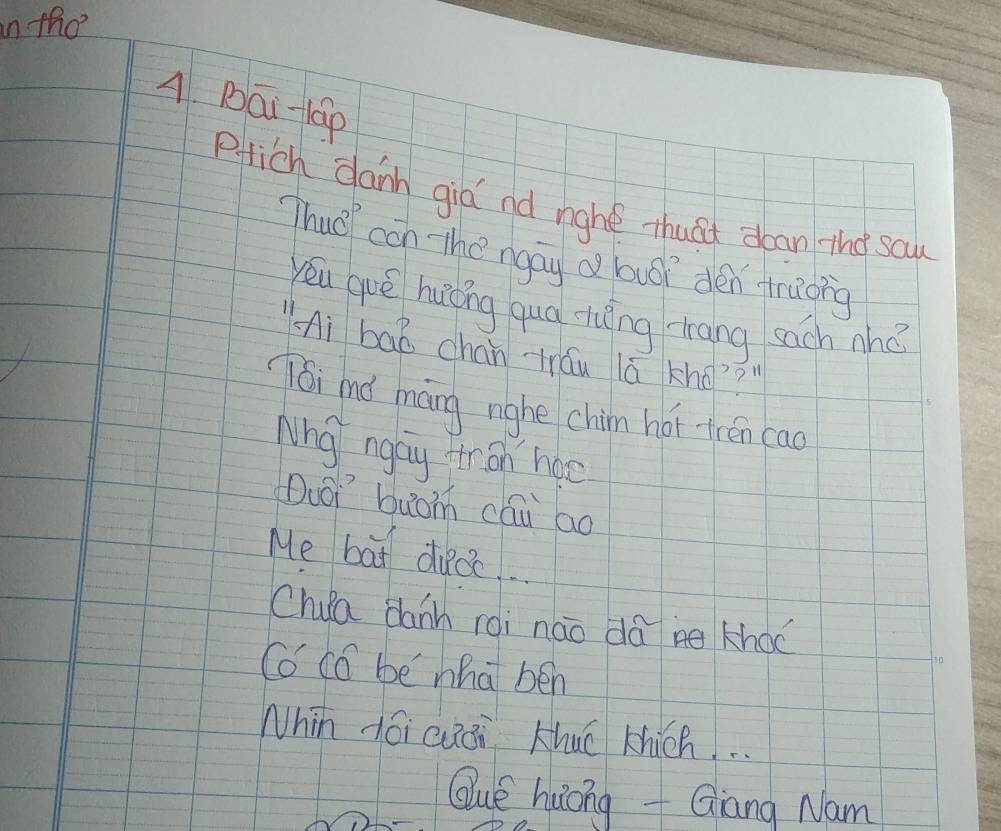 n thơ
4. Bài tập
Ptích đánh giá nd nghệ thuật đoạn thơ sau
Thuở còn thơ ngày 2 buổi đến trường
Yêu quê hương qua từng trang sách nhỏ
"Ai bảo chăn trâu là khổ??"
Tôi mơ màng nghe chim hót trên cao
Nhg ngày trốn học
Đuổi bướm cầu ao
Mẹ bắt được...
Chưa đánh roi nào đã khóc
Có cô bé nhà bên
Nhìn tôi cười khúc khích...
Quê hương - Giang Nam